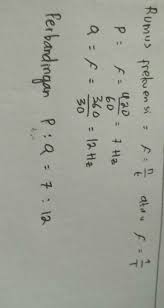 Rumus frekuensi = f = n/t atau f = 1/T
P = f = 420/60 = 7 Hz
Q = f = 360/30 = 12 Hz
Perbandingan P : Q = 7 : 12